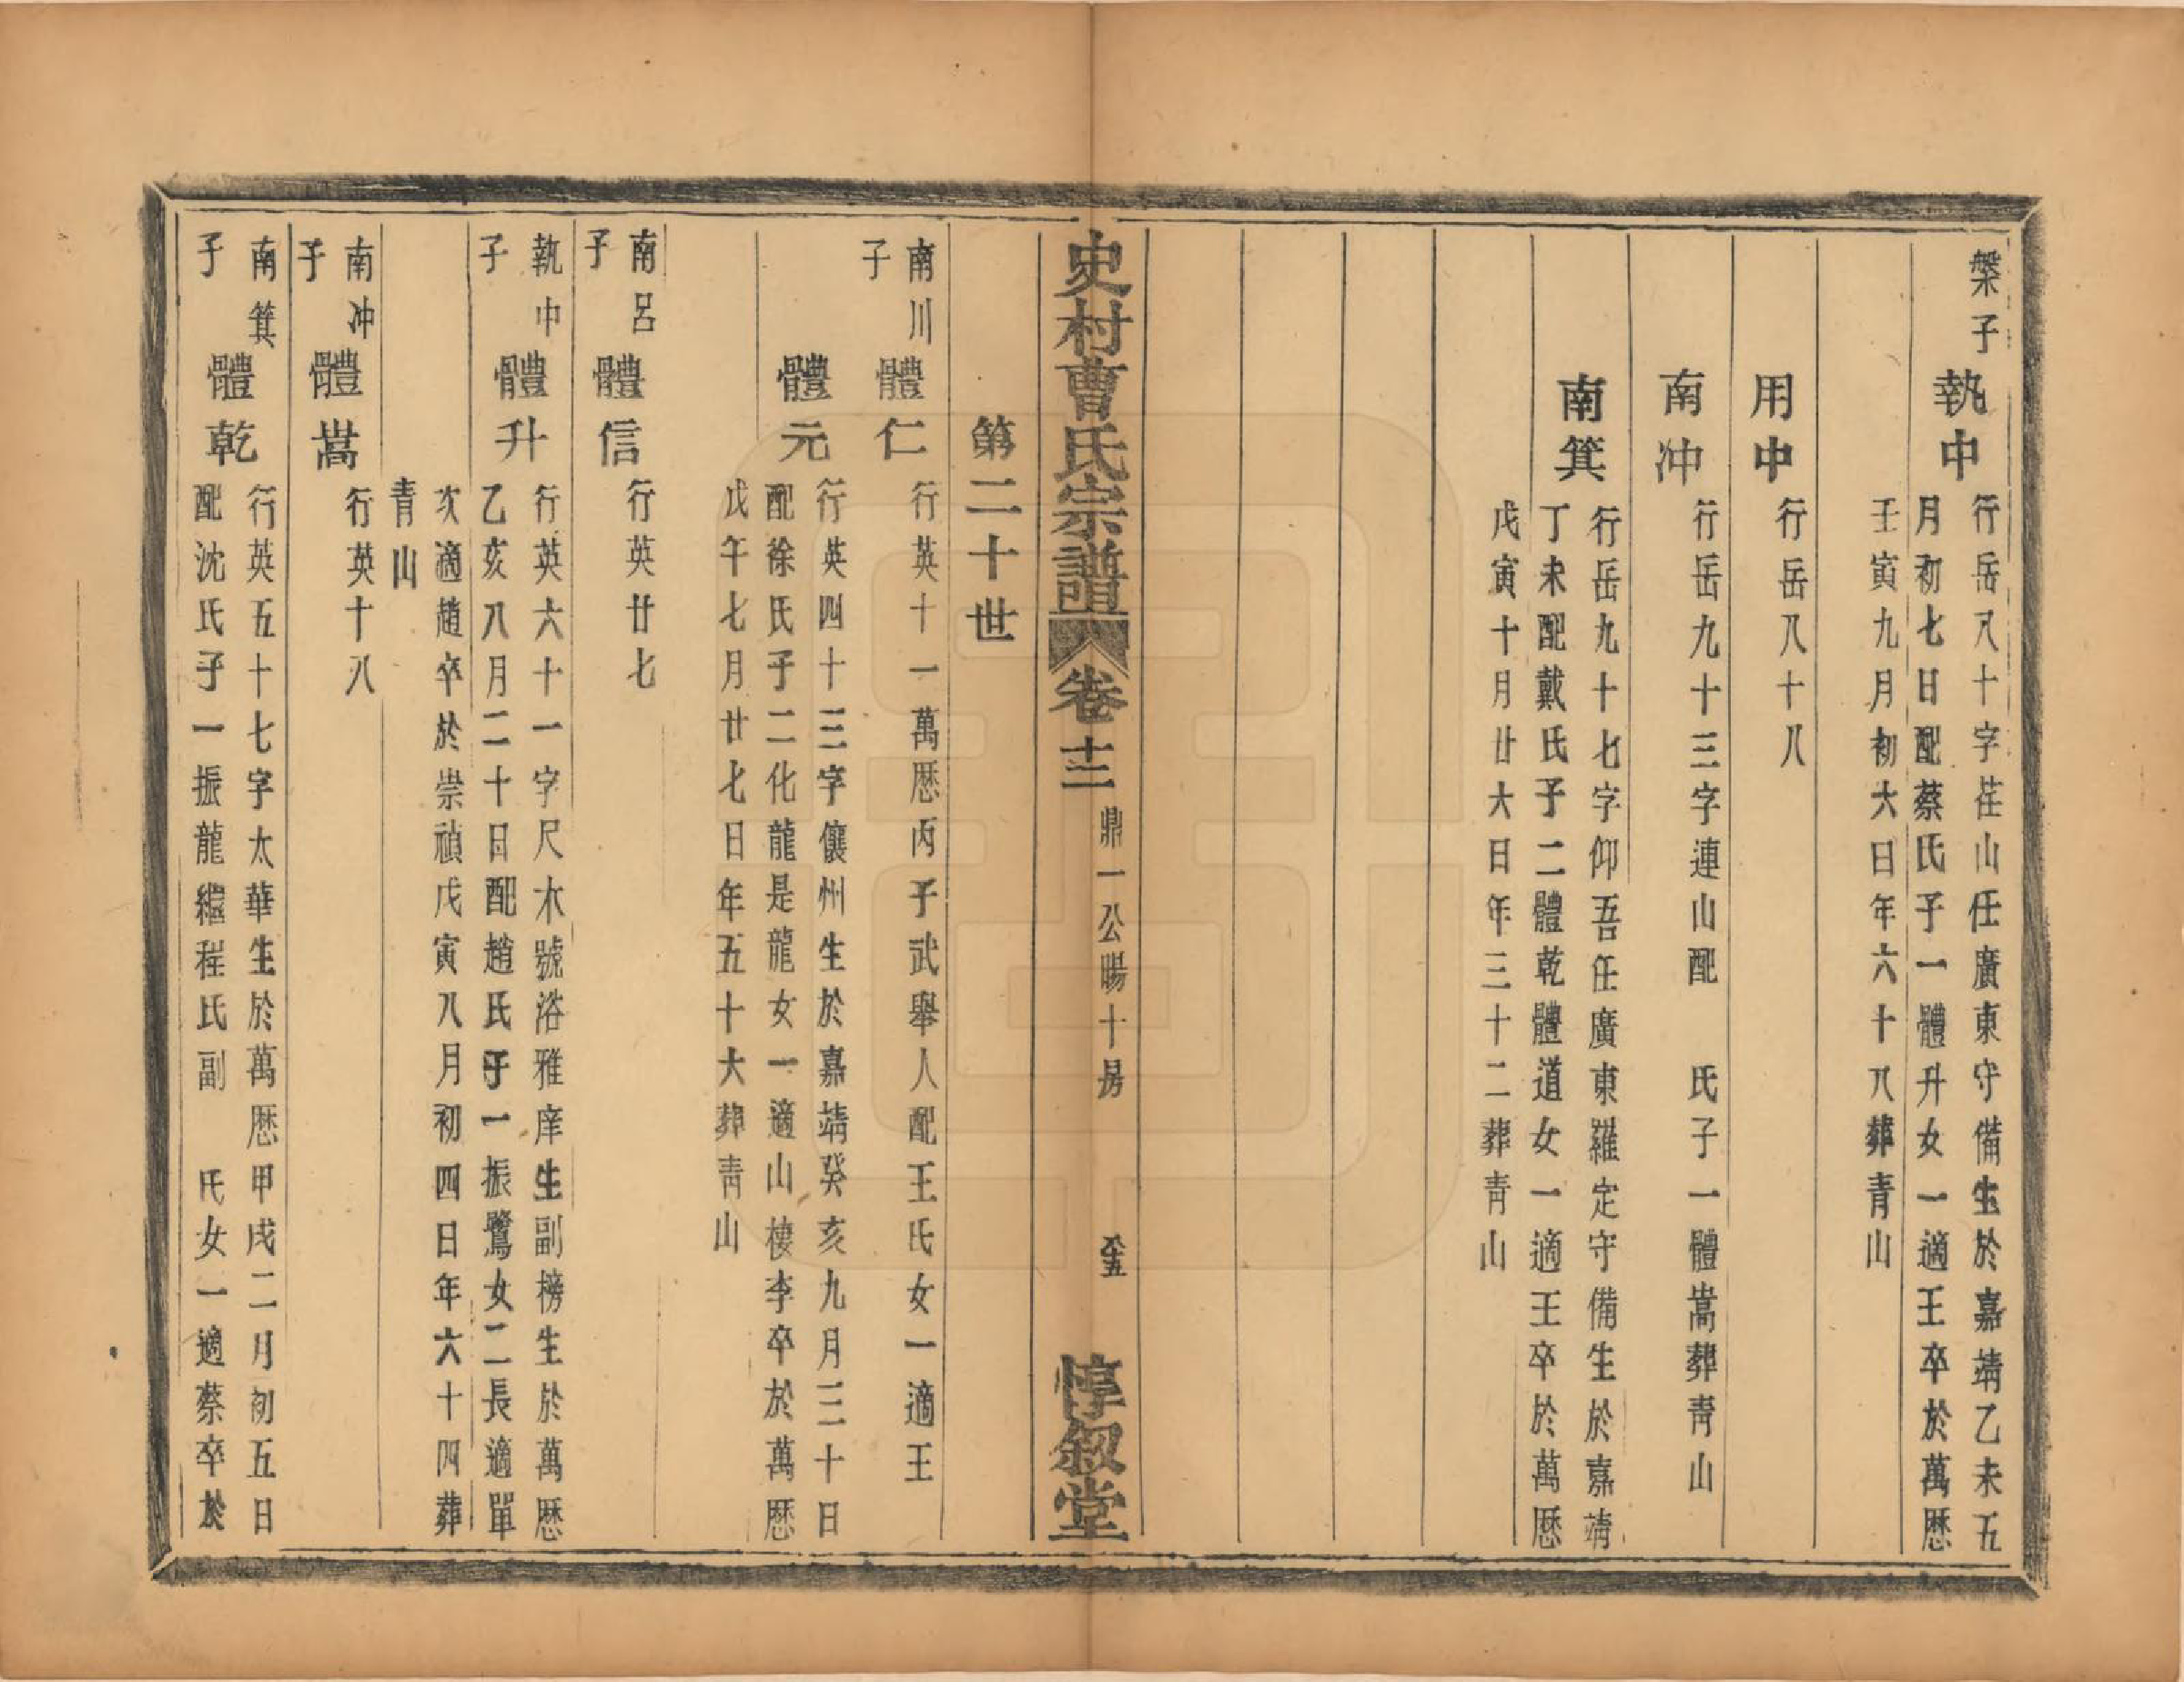 槃子
執中
行岳八十字荏山任廣東守備生於嘉靖乙未五
月初七日配蔡氏子一體升女一適王卒於萬歷
壬寅九月初六日年六十八葬青山
用中
行岳八十八
南冲
行岳九十三字連山配　氏子一體嵩葬青山
南箕
行岳九十七字仰吾任廣東羅定守備生於嘉靖
丁未配戴氏子二體乾體道女一適王卒於萬歷
戊寅十月廿六日年三十二葬青山
史村曹氏宗譜
卷十三
鼎一公暘十房
惇敘堂
第二十世
南川
子
體仁
行英十一萬歷丙子武舉人配王氏女一適王
體元
行英四十三字儀州生於嘉靖癸亥九月三十日
配徐氏子二化龍是龍女一適山棲李卒於萬歷
戊午七月廿七日年五十六葬青山
南呂
子
體信
行英廿七
執中
子
體升
行英六十一字尺木號浴雅庠生副榜生於萬歷
乙亥八月二十日配趙氏子一振鷺女二長適單
次適趙卒於崇禎戊寅八月初四日年六十四葬
青山
南冲
子
體嵩
行英十八
南箕
子
體乾
行英五十七字太華生於萬歷甲戌二月初五日
配沈氏子一振龍繼程氏副　氏女一適蔡卒於